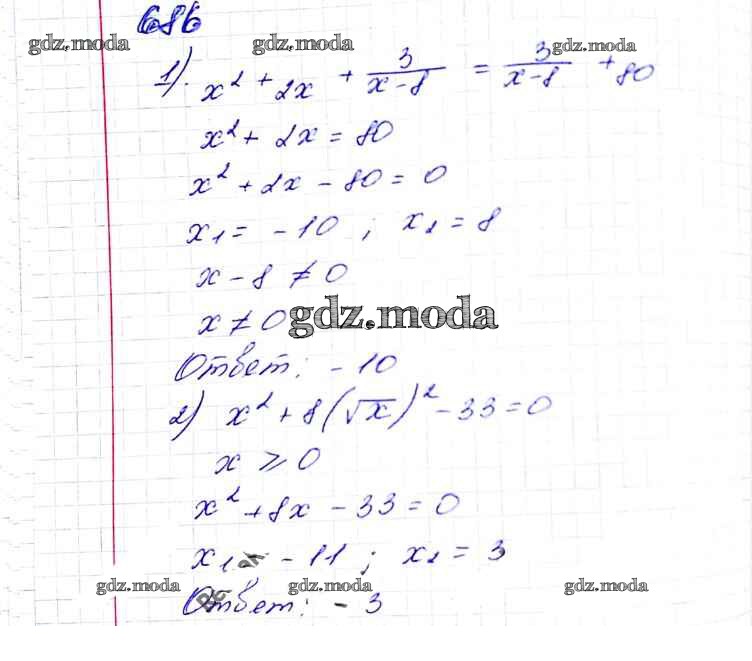 686
gdz.moda gdz.moda gdz.moda
1). x² + 2x + 3/(x-8) = 3/(x-8) + 80
x² + 2x = 80
x² + 2x - 80 = 0
x₁ = -10 ; x₂ = 8
x - 8 ≠ 0
x ≠ 0
gdz.moda
Ответ: -10
2) x² + 8(√x)² - 33 = 0
x ⩾ 0
x² + 8x - 33 = 0
x₁ = -11 ; x₂ = 3
gdz.moda gdz.moda gdz.moda
Ответ: - 3